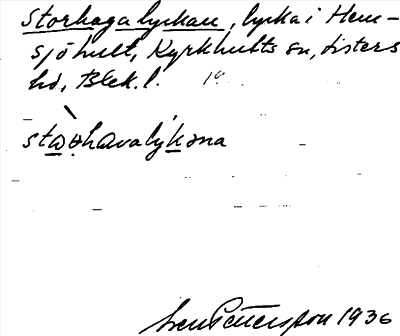 Storhagalyckan, lycka i Hem-
sjöhult, Kyrkhults sn, Listers
hd, Blek. l.
Sven Pettersson 1936